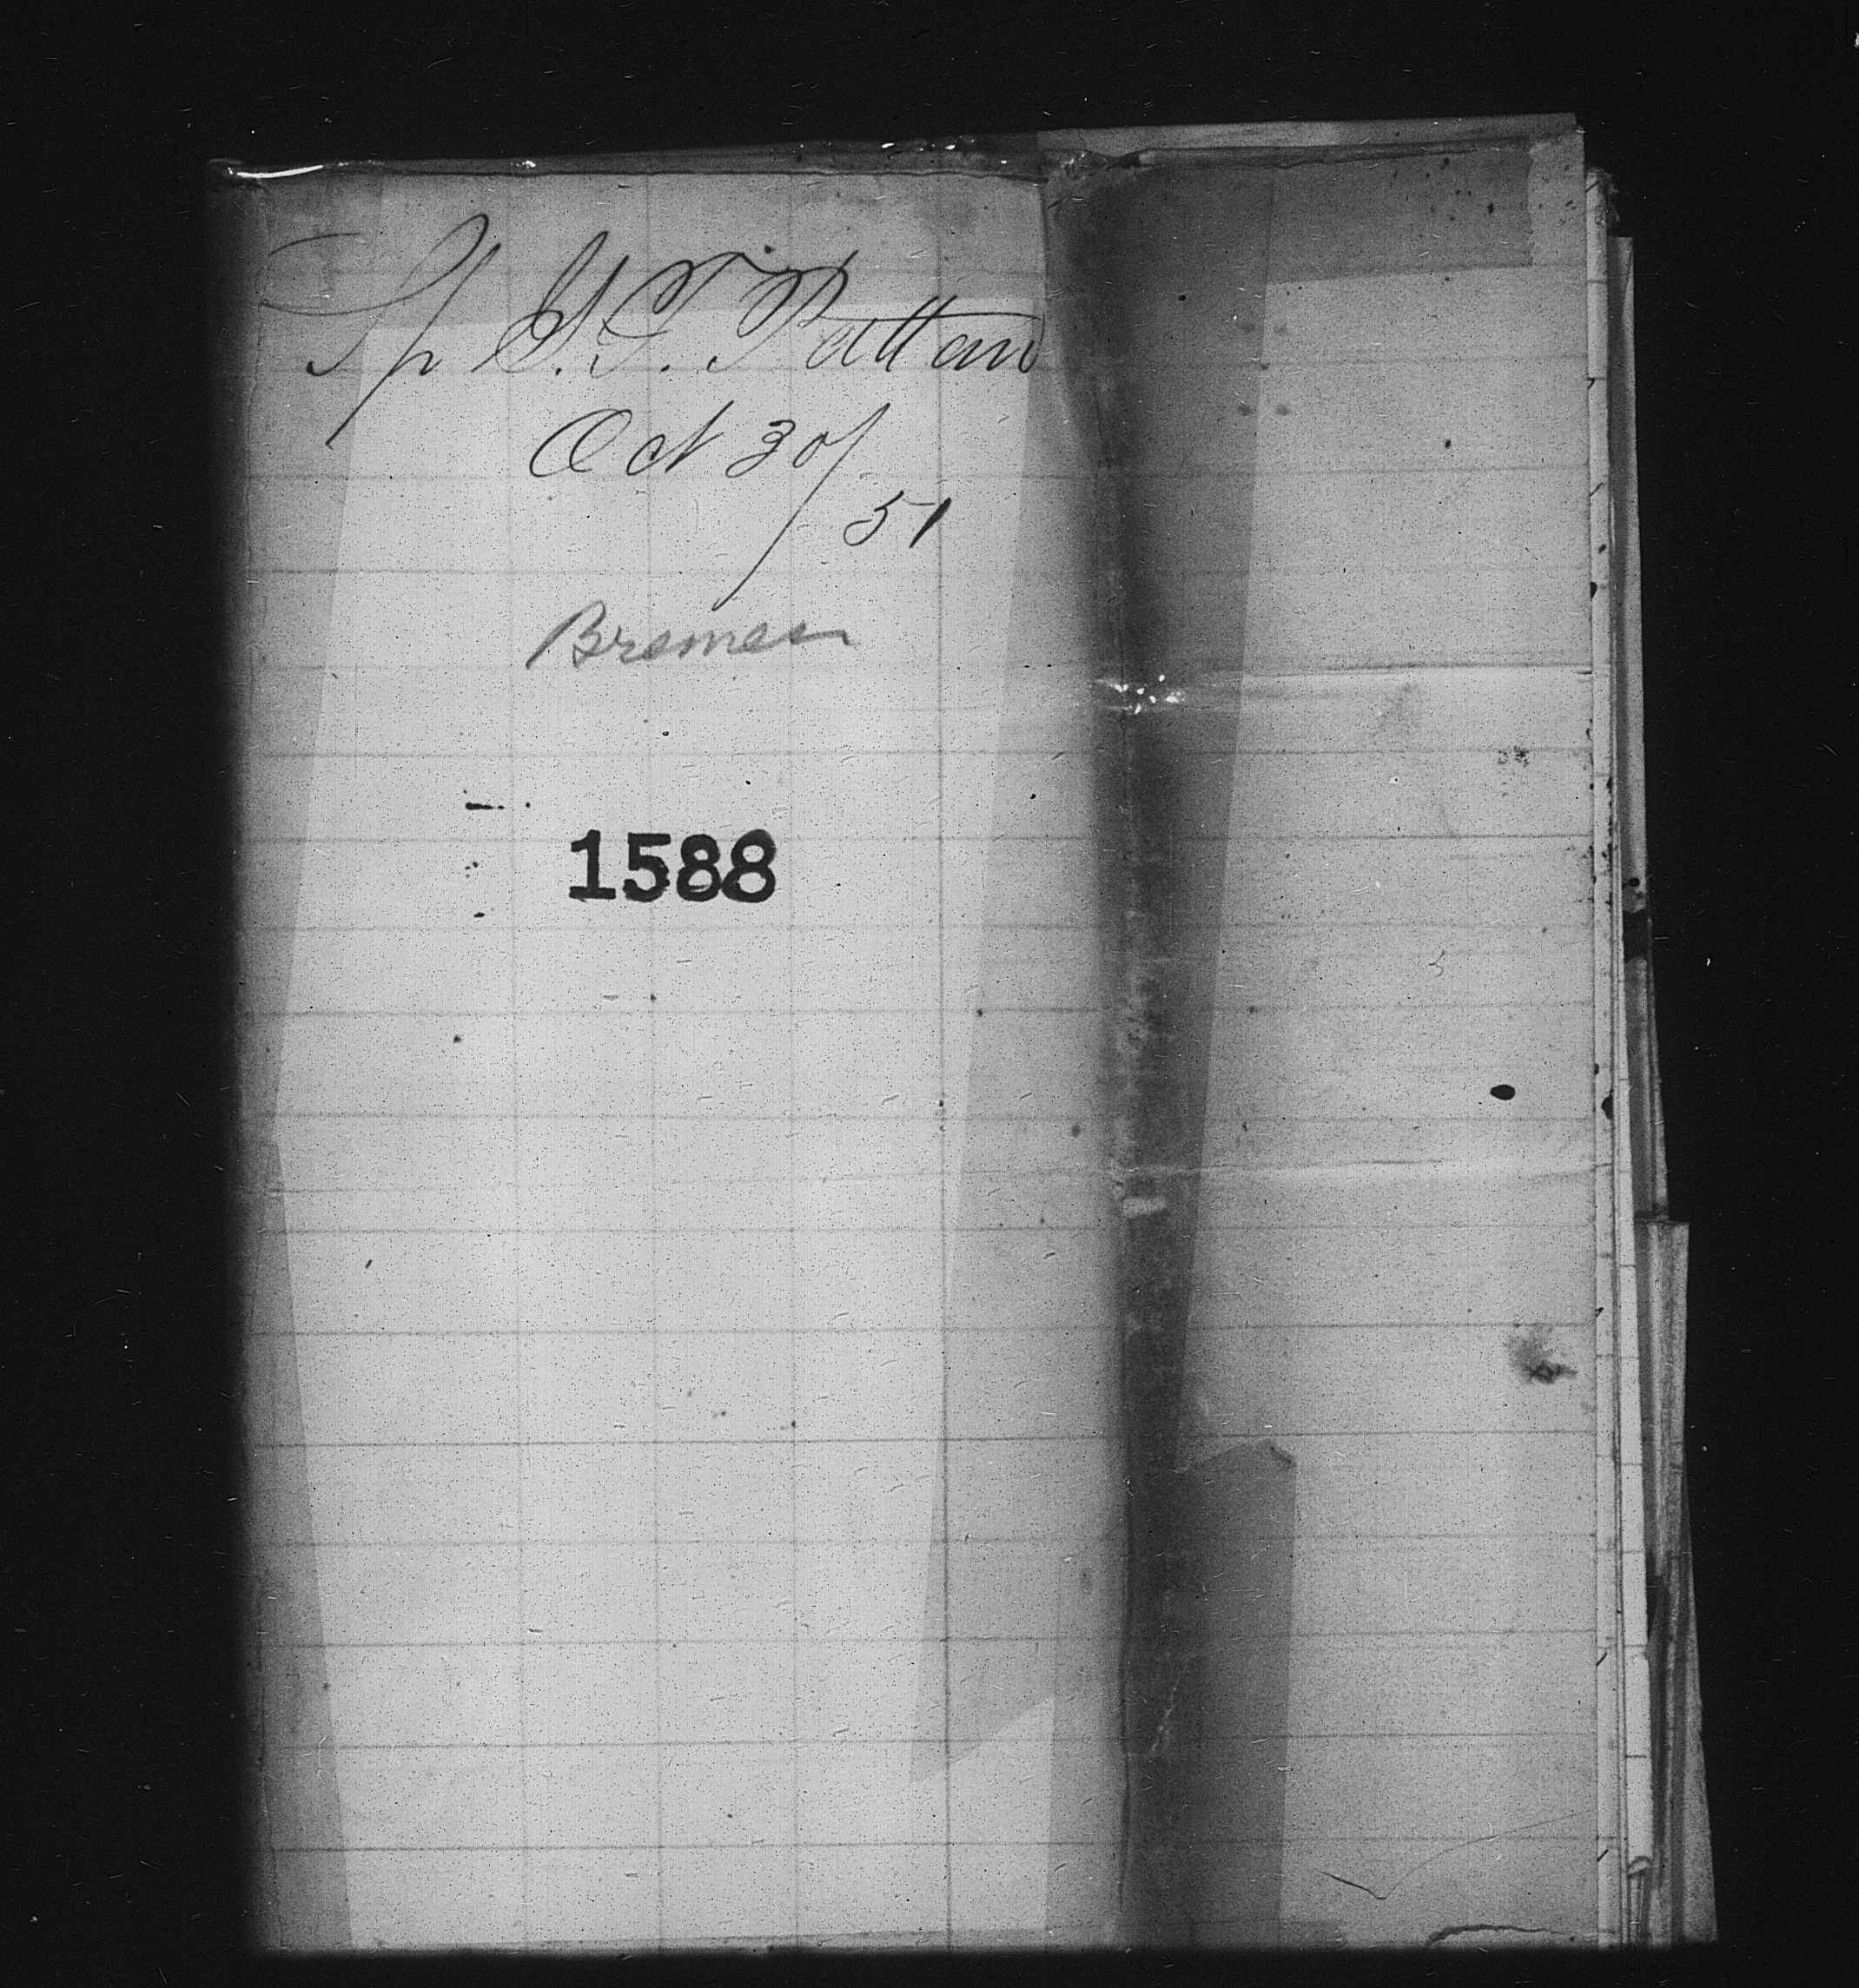 Sp S. T. Pattan
Oct 30/
51
Bremen
1588